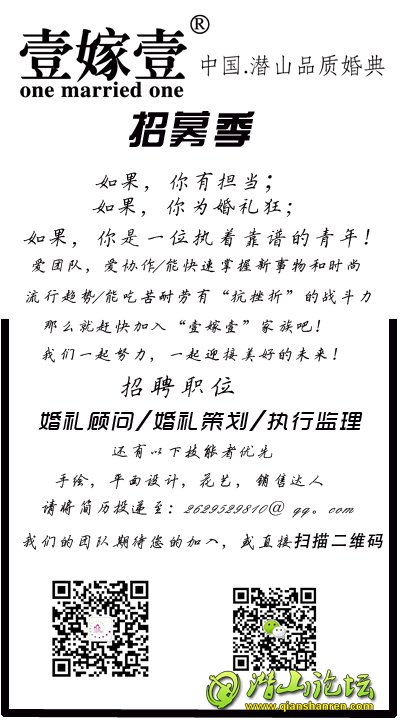 壹嫁壹®
one married one
中国.潜山品质婚典
招募季
如果，你有担当；
如果，你为婚礼狂；
如果，你是一位执着靠谱的青年！
爱团队，爱协作/能快速掌握新事物和时尚
流行趋势/能吃苦耐劳有“抗挫折”的战斗力
那么就赶快加入“壹嫁壹”家族吧！
我们一起努力，一起迎接美好的未来！
招聘职位
婚礼顾问/婚礼策划/执行监理
还有以下技能者优先
手绘，平面设计，花艺，销售达人
请将简历投递至：2629529810@qq。com
我们的团队期待您的加入，或直接扫描二维码
潜山论坛
www.qianshanren.com